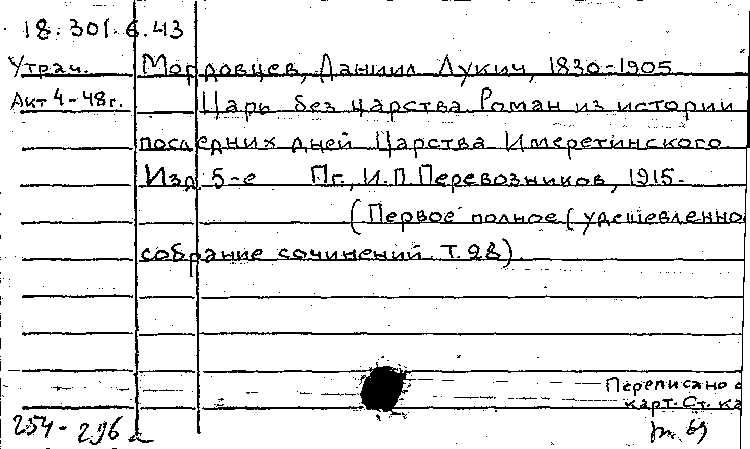 18.301.6.43
Утрач. Мордовцев, Даниил Лукич, 1830-1905
Акт 4-48г. Царь без царства Роман из истории
последних дней Царства Имеретинского
Изд 5-е Пг., И.П.Перевозников, 1915.
(Первое полное (удешевленно
собрание сочинений. Т.28).
Переписано с
карт. Ст. ка
254-296